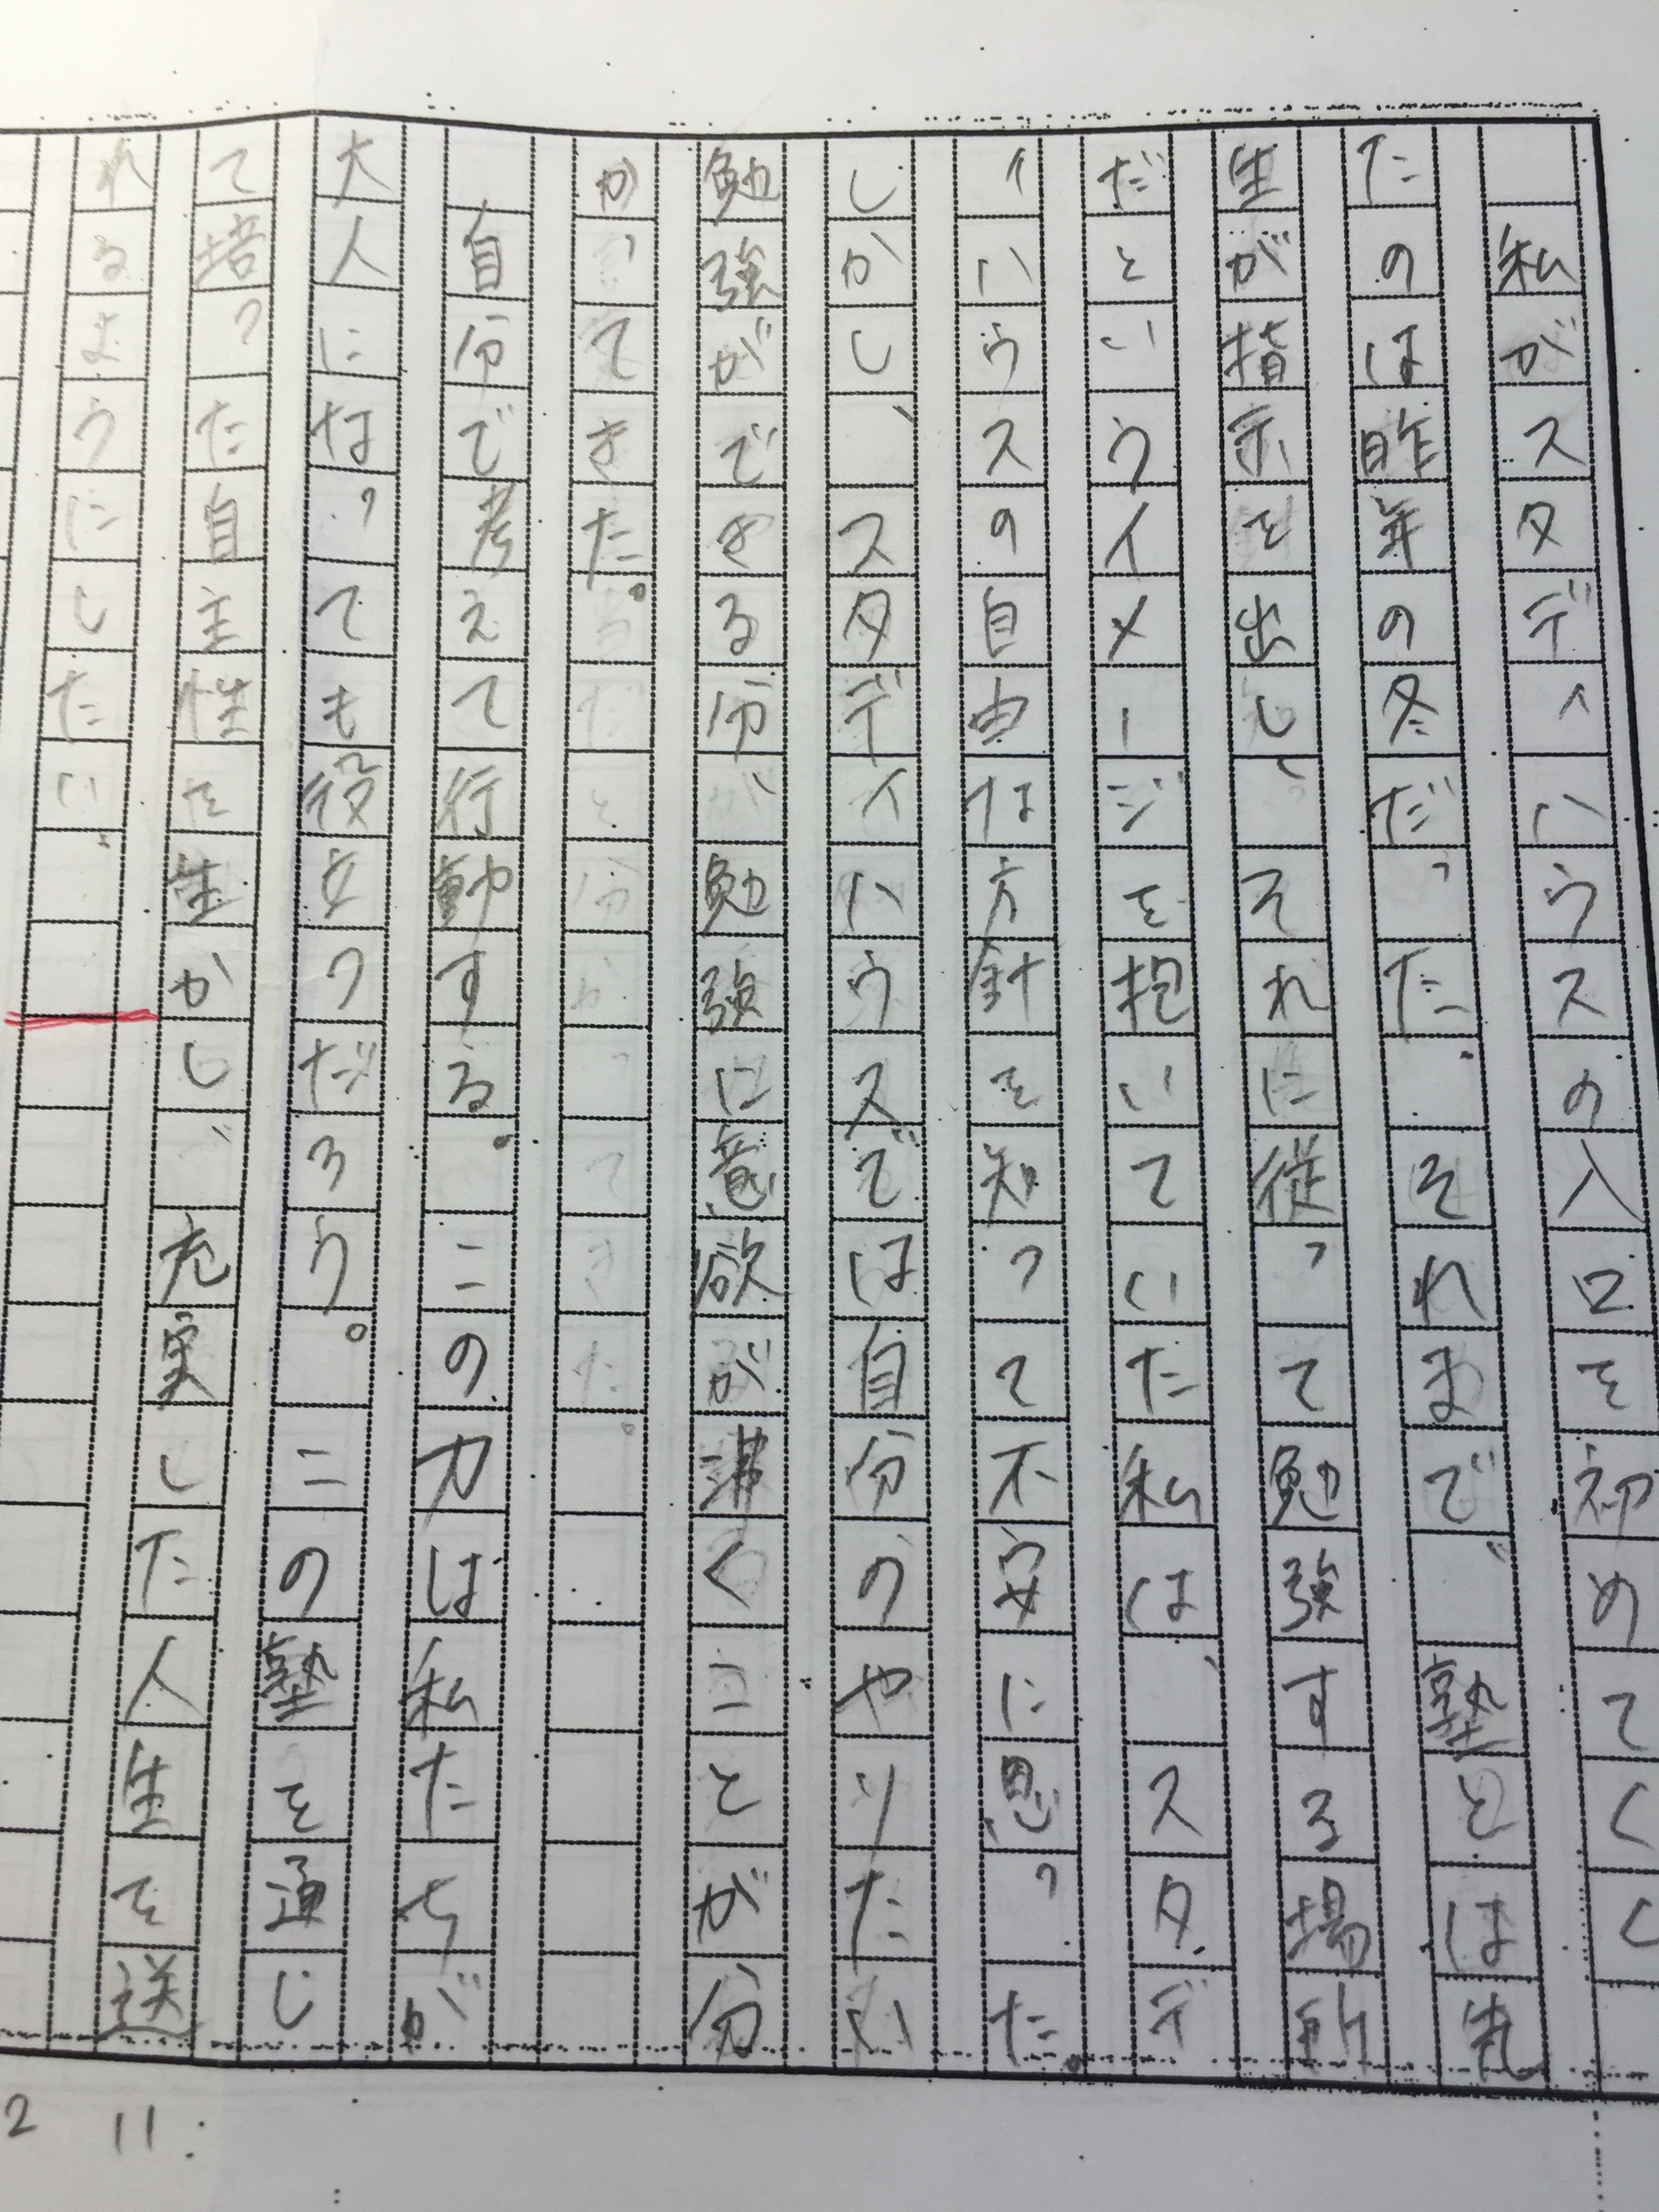 私がスタディハウスの入口を初めてくぐっ
たのは昨年の冬だった。それまで、塾とは先
生が指示を出し、それに従って勉強する場所
だというイメージを抱いていた私は、スタデ
ィハウスの自由な方針を知って不安に思った。
しかし、スタディハウスでは自分のやりたい
勉強ができる分、勉強に意欲が沸くことが分
かってきた。
自分で考えて行動する。この力は私たちが
大人になっても役立つだろう。この塾を通じ
て培った自主性を生かし、充実した人生を送
れるようにしたい。
2 11